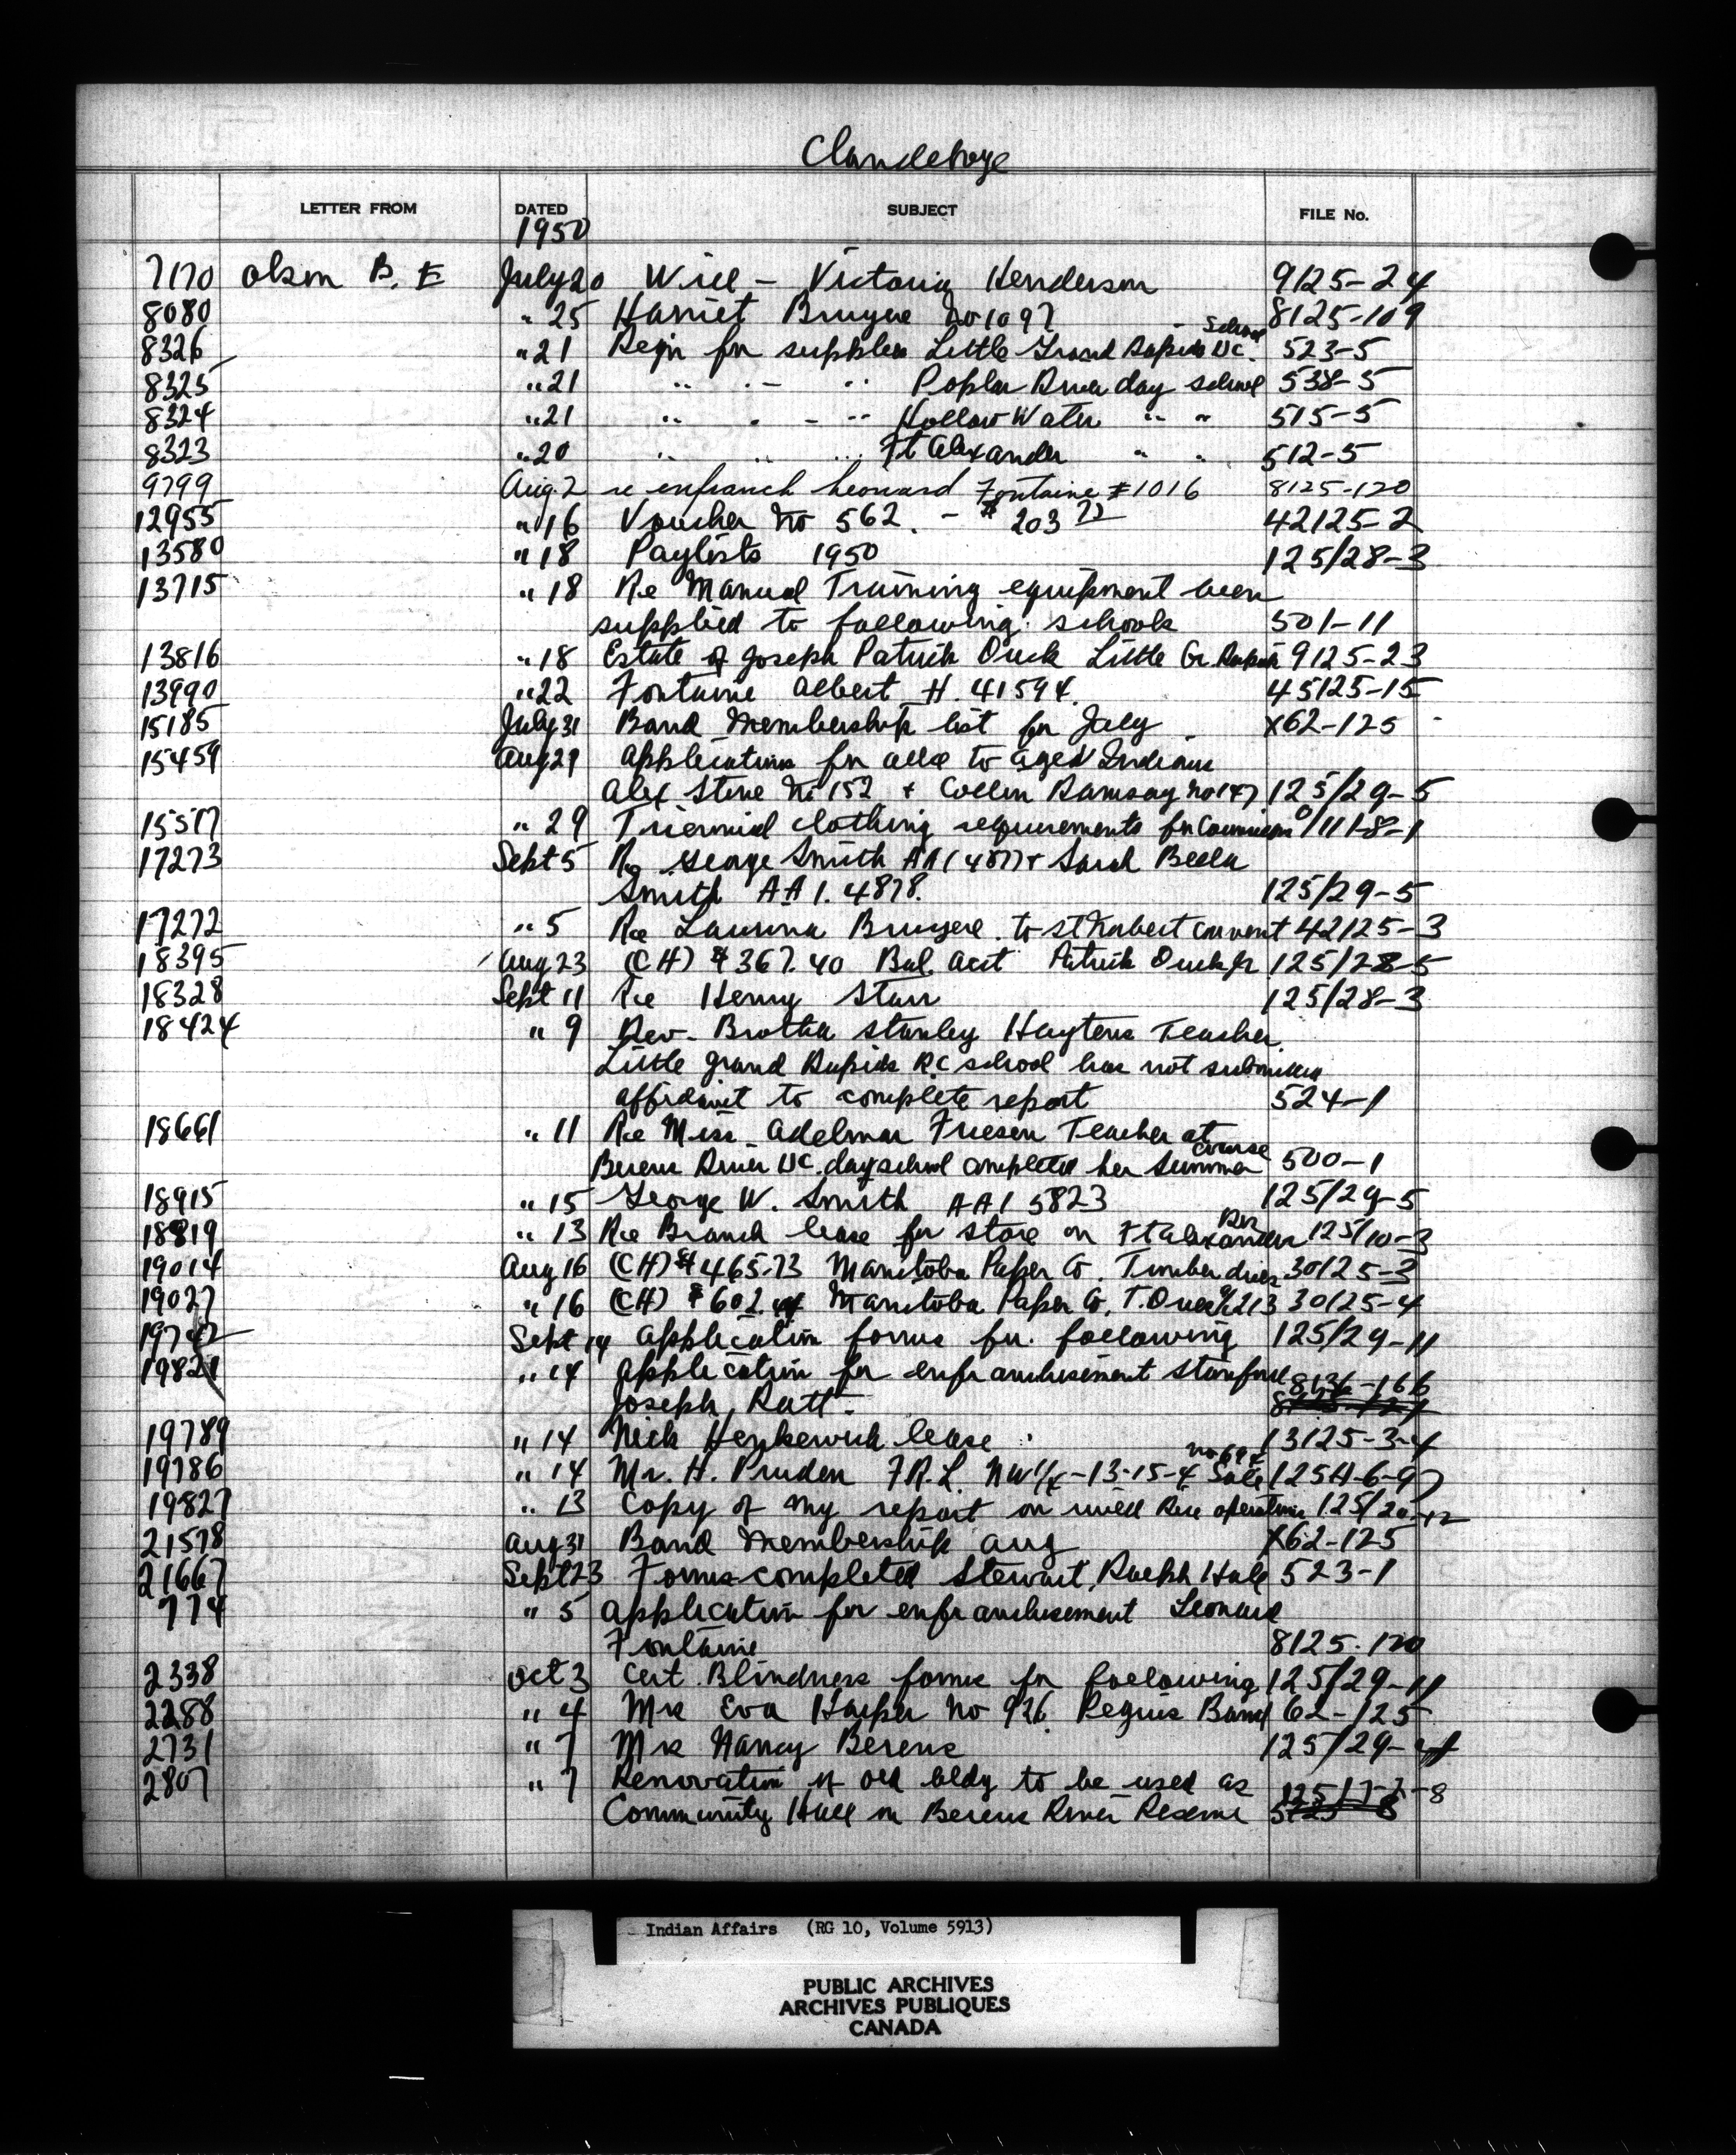 Clandeboye
LETTER FROM DATED SUBJECT FILE No.
1950
7170 Olson B. E July 20 Will - Victoria Henderson 9125-24
8080 " 25 Harriet Bruyere No 1097 8125-109
8326 " 21 Reqn for supplies Little Grand Rapids UC. School 523-5
8325 " 21 " " " Poplar River day school 538-5
8324 " 21 " " " " Hollow Water " " 515-5
8323 " 20 " " " Ft Alexander " " 512-5
9799 Aug. 2 re enfranch Leonard Fontaine #1016 8125-120
12955 " 16 Voucher No 562. - $ 203 42125-2
13580 " 18 Paylists 1950 125/28-3
13715 " 18 Re Manual Training equipment been
supplied to following schools 501-11
13816 " 18 Estate of Joseph Patrick Duck Little Gr. Rapids 9125-23
13990 " 22 Fontaine Albert H. 41594. 45125-15
15185 July 31 Band Membership list for July X62-125
15459 Aug 29 Applications for allce to aged Indians
Alex Stone No 152 + Collin Ramsay No 147 125/29-5
15517 " 29 Triennial clothing requirements for 1/11-8-1
17273 Sept 5 Re George Smith AA1 4877 + Sarah Bella
Smith AA 1. 4878. 125/29-5
17272 " 5 Re Laurina Bruyere to St Norbert convent 42125-3
18395 Aug 23 (CH) $367.40 Bal. acct Patrick Duck Jr 125/28-5
18328 Sept 11 Re Henry Starr 125/28-3
18424 " 9 Rev. Brother Stanley Hayters Teacher
Little Grand Rapids R.C school has not submitted
affidavit to complete report 524-1
18661 " 11 Re Miss Adelmar Friesen Teacher at
Berens River UC. day school completed her Summer course 500-1
18915 " 15 George W. Smith AA1 5823 125/29-5
18819 " 13 Re Branch lease for store on Ft Alexander Res 125/10-3
19014 Aug 16 (CH) $465.73 Manitoba Paper Co. Timber dues 30125-3
19027 " 16 (CH) $602. Manitoba Paper Co. T. Dues 213 30125-4
19742 Sept 14 Application forms for following 125/29-11
19821 " 14 Application for enfranchisement Stanford
Joseph Ratt. 8136-166
19789 " 14 Nick Henkewich lease 13125-3-4
19786 " 14 Mr. H. Pruden F.R.L. NW1/4-13-15-4 Sale No 694 125H-6-97
19827 " 13 Copy of my report on wild Rice operations 125/20-12
21578 Aug 31 Band Membership Aug X62-125
21667 Sept 23 Forms completed Stewart, Ralph Hale 523-1
774 " 5 Application for enfranchisement Leonard
Fontaine 8125-120
2338 Oct 3 Cert. Blindness forms for following 125/29-11
2288 " 4 Mrs Eva Harper No 926. Peguis Band 62-125
2731 " 7 Mrs Nancy Berens 125/29-4
2807 " 7 Renovation of old bldg to be used as 125/7-3-8
Community Hall on Berens River Reserve
Indian Affairs (RG 10, Volume 5913)
PUBLIC ARCHIVES
ARCHIVES PUBLIQUES
CANADA